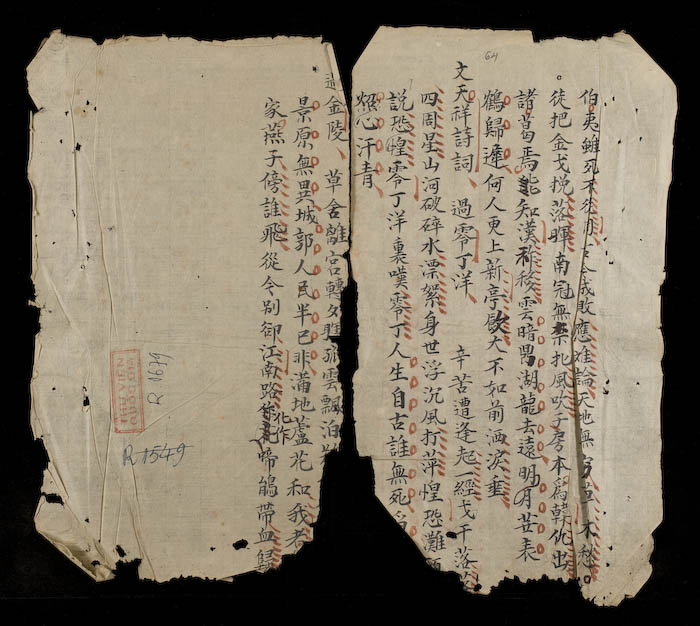 64
伯夷雖死不從 今成敗應难論天地無 不愁。
。徒把金戈挽落暉南冠無柰扎風吹子房本爲韓仇出
諸葛焉能知漢祚移雲暗 湖龍去遠明月苦表
鶴歸遲何人更上薪亭 大不如前洒淚垂
文天祥詩詞 過零丁洋 辛苦遭逢起一經戈干落
四周星山河破碎水漂絮身世浮沉風打萍惶恐灘
說恐惶零丁洋裏嘆零丁人生自古誰無死
心汗青
過金陵 草舍離宮轉夕 孤雲飄泊
景原無異城郭人民半已非滿地蘆花和我老
家燕子傍誰飛從今别卻江南路化作啼鵑帶血歸
THƯ VIỆN
QUỐC GIA
R 1679
R1549